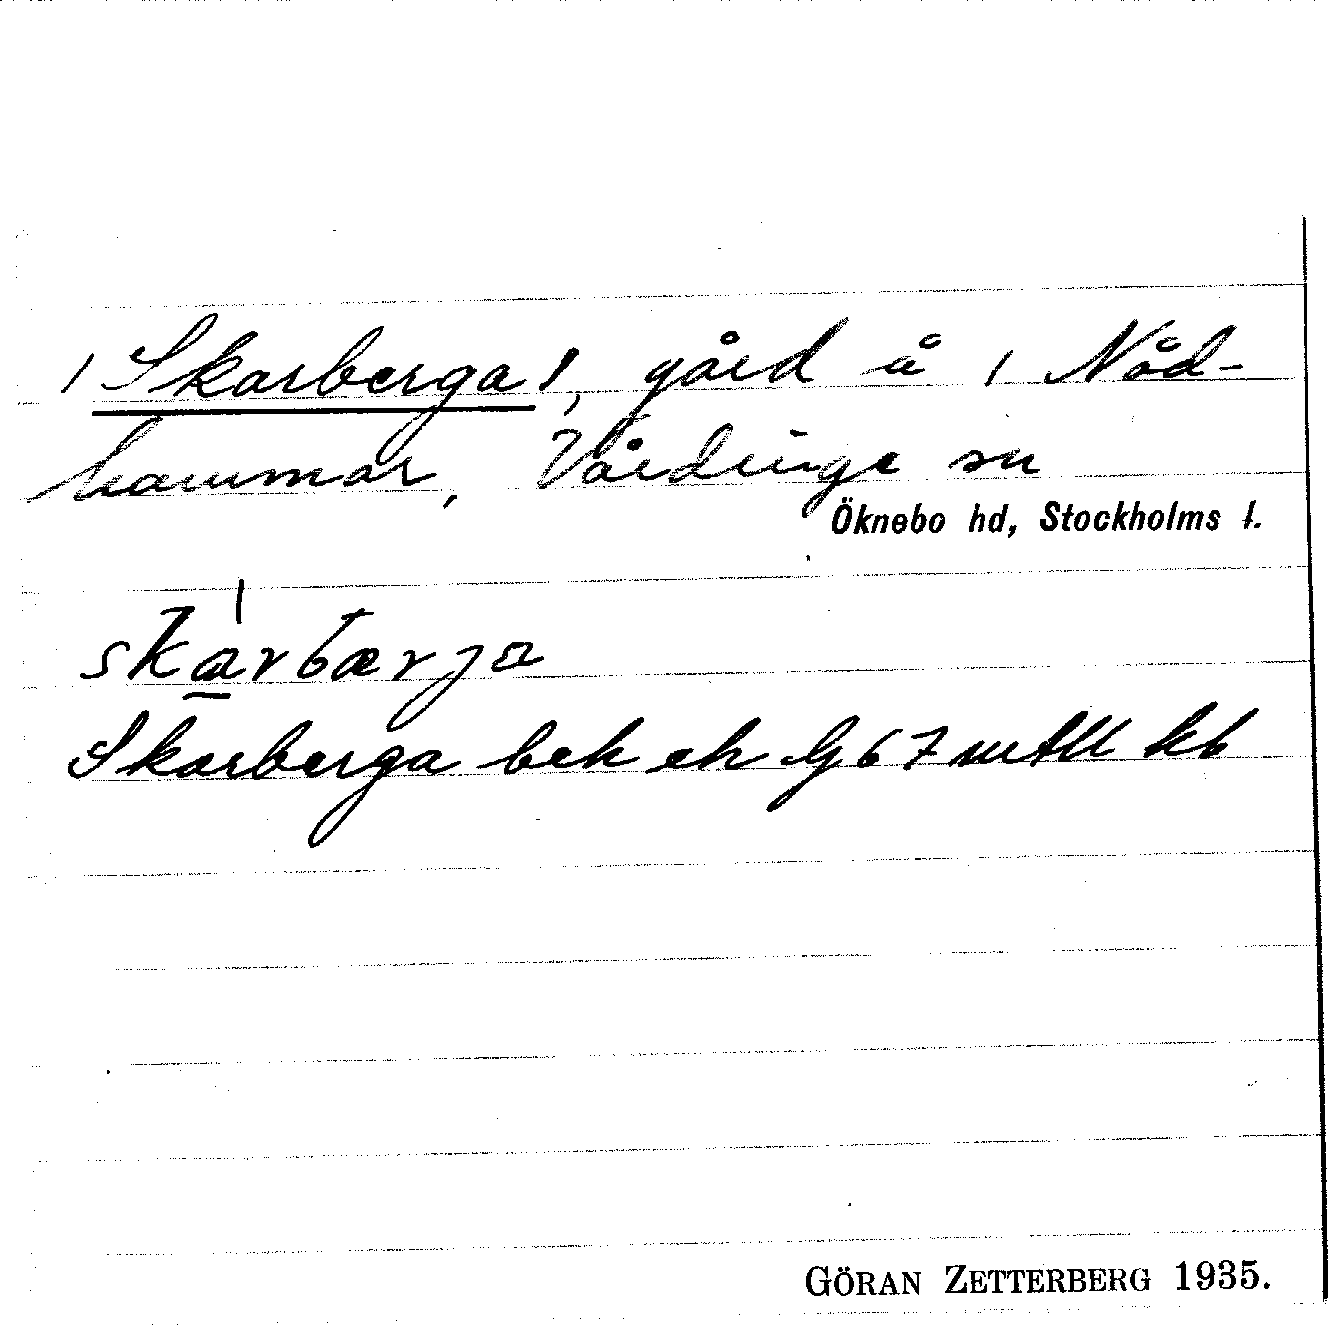 1 Skarberga 1, gård å 1 Nåd-
hammar, Vårdinge sn
Öknebo hd, Stockholms l.
skarbærja
Skarberga bek eh Gb 67 mtll kb
GÖRAN ZETTERBERG 1935.